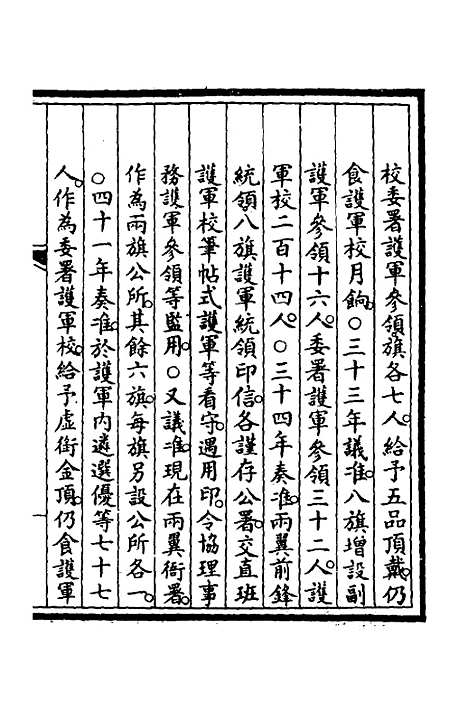 校委署護軍參領旗各七人。給予五品頂戴。仍
食護軍校月餉。○三十三年議准。八旗增設副
護軍參領十六人。委署護軍參領三十二人。護
軍校二百十四人。○三十四年奏准。兩翼前鋒
統領八旗護軍統領印信。各謹存公署。交直班
護軍校筆帖式護軍等看守。遇用印。令協理事
務護軍參領等監用。○又議准。現在兩翼衙署。
作為兩旗公所。其餘六旗。每旗另設公所各一。
○四十一年奏准。於護軍內遴選優等七十七
人。作為委署護軍校。給予虛銜金頂。仍食護軍